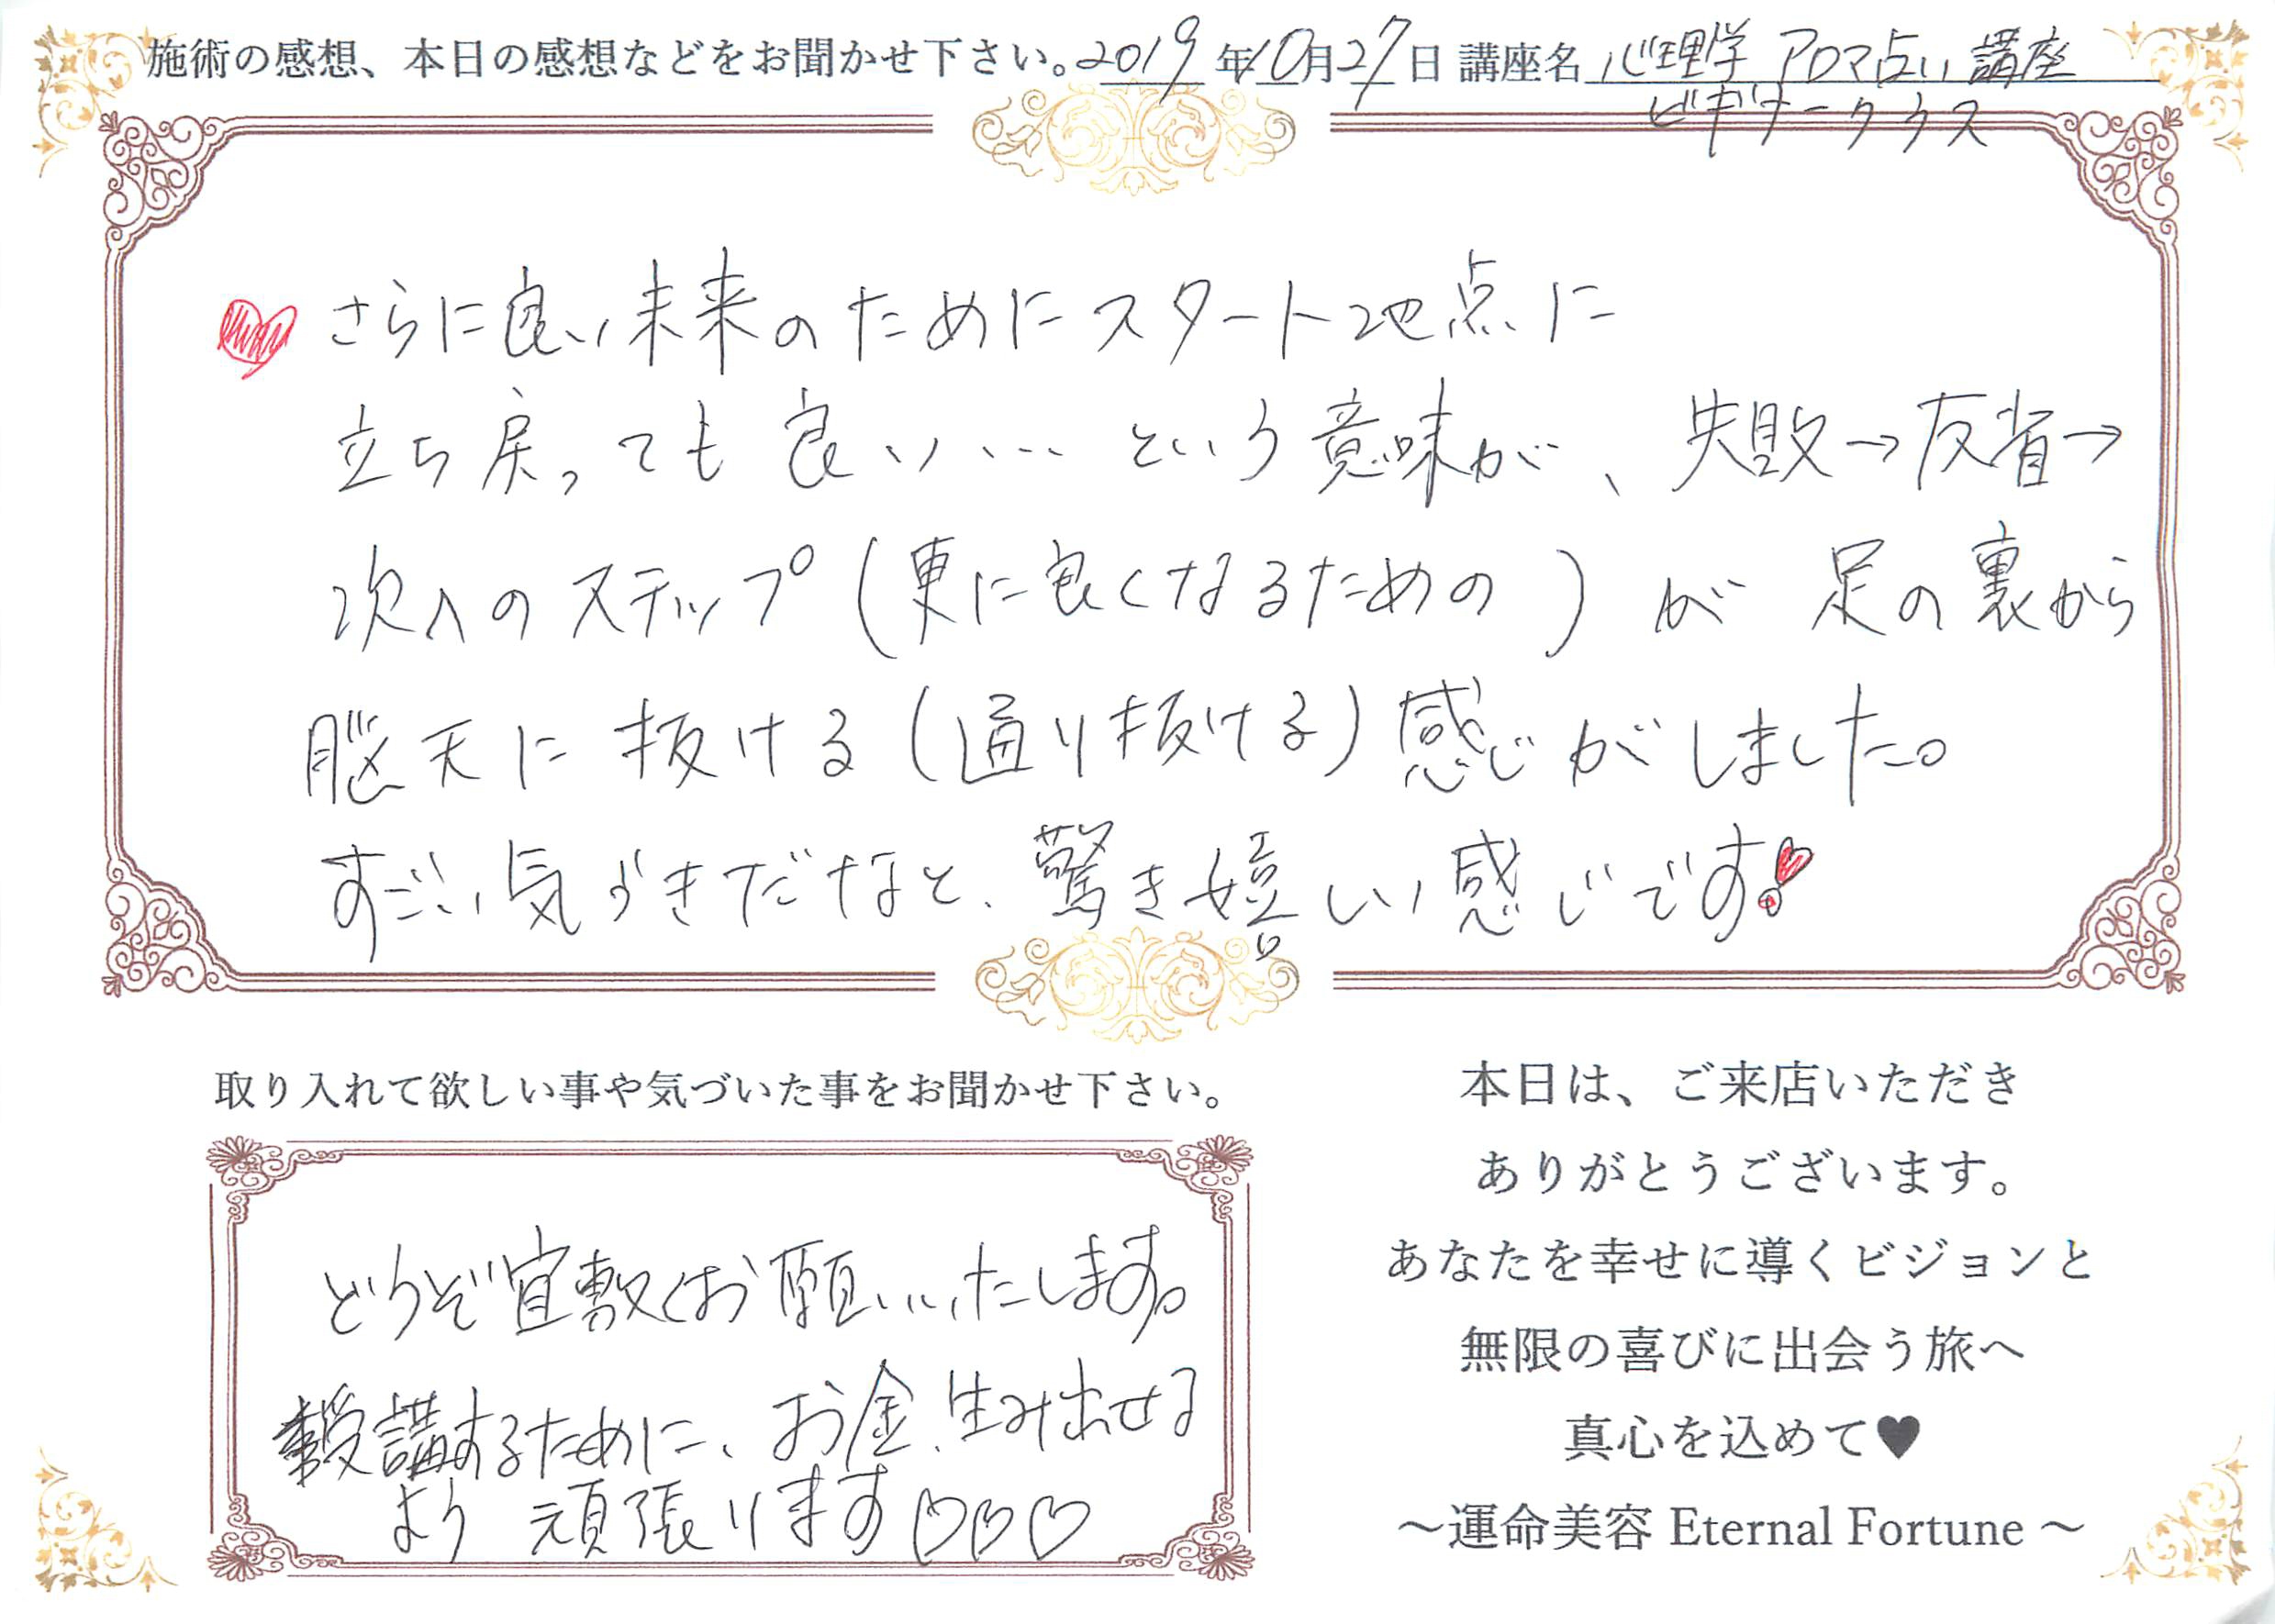 施術の感想、本日の感想などをお聞かせ下さい。2019年10月27日 講座名 心理学 アロマ占い講座
ビギナークラス
さらに良い未来のためにスタート地点に
立ち戻っても良い…という意味が、失敗→反省→
次へのステップ(更に良くなるための)が足の裏から
脳天に抜ける(通り抜ける)感じがしました。
すごい気づきだなと、驚き嬉しい感じです!
取り入れて欲しい事や気づいた事をお聞かせ下さい。
どうぞ宜敷くお願いいたします。
受講するために、お金、生み出せる
よう 頑張ります♡♡♡
本日は、ご来店いただき
ありがとうございます。
あなたを幸せに導くビジョンと
無限の喜びに出会う旅へ
真心を込めて♥
～運命美容 Eternal Fortune ～